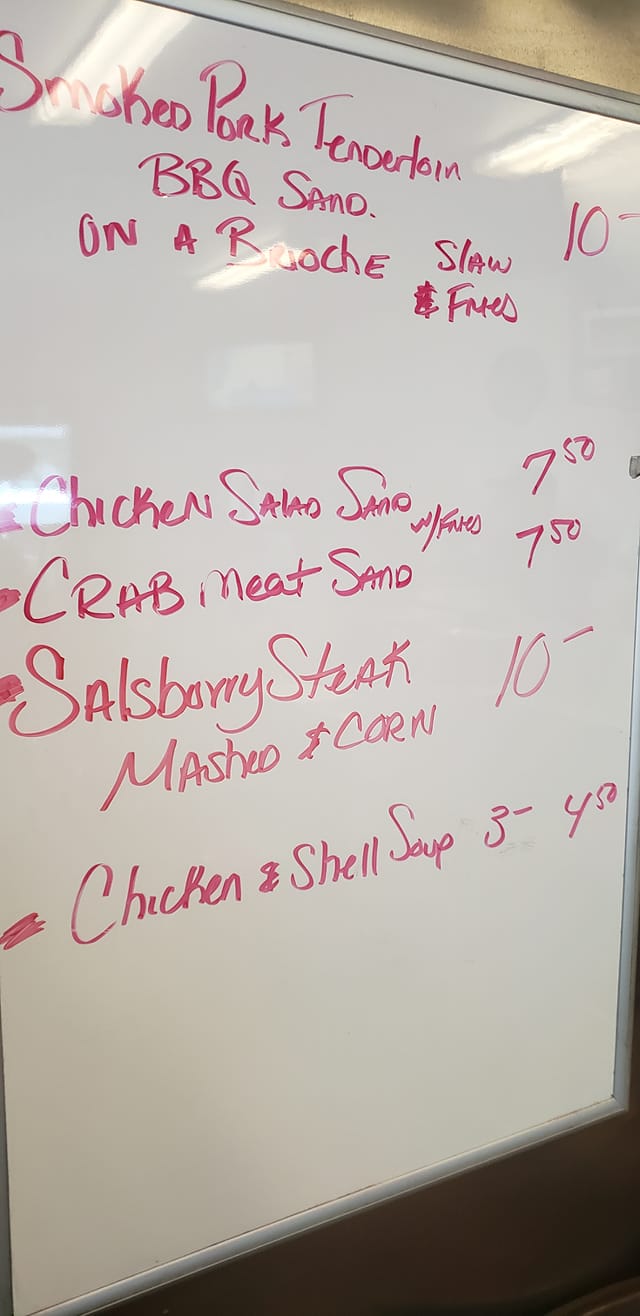 Smoked Pork Tenderloin
BBQ Sand.
on a Brioche Slaw 10-
& Fries
Chicken Salad Sand w/Fries 7 50
Crab Meat Sand 7 50
Salsburry Steak 10-
Mashed & Corn
Chicken & Shell Soup 3- 4 50